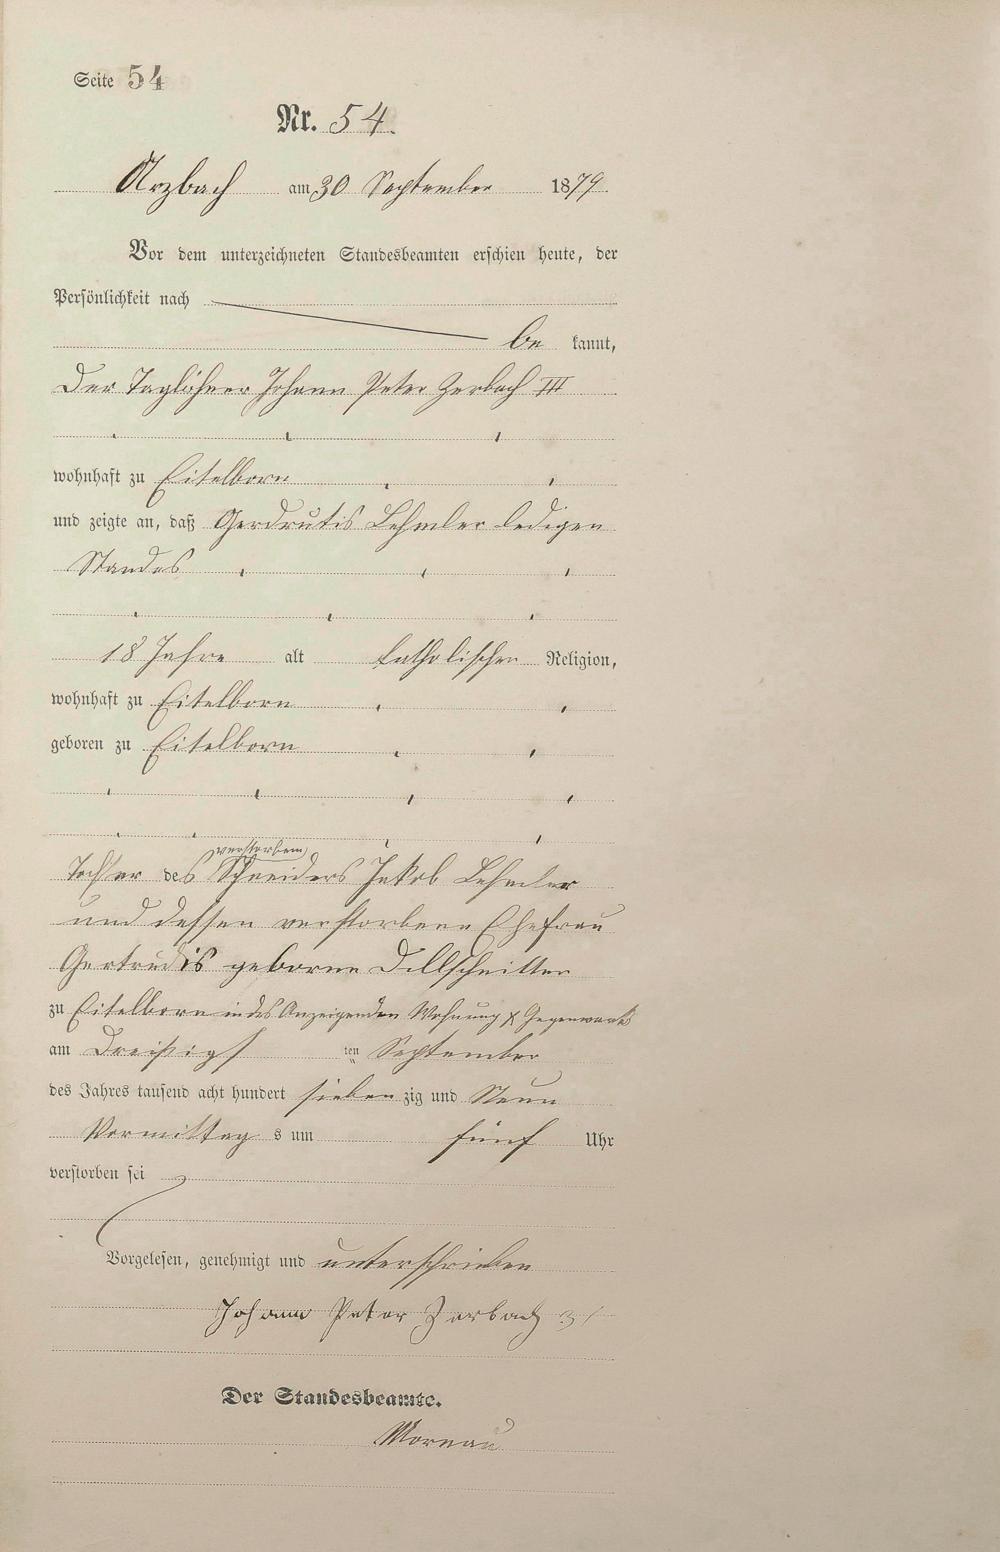 Seite 54
Nr. 54.
Arzbach am 30 September 1879.
Vor dem unterzeichneten Standesbeamten erschien heute, der
Persönlichkeit nach
be kannt,
der Taglöhner Johann Peter Zerbach III
wohnhaft zu Eitelborn
und zeigte an, daß Gerdrutis Lehmler ledigen
Standes
18 Jahre alt katholischen Religion,
wohnhaft zu Eitelborn
geboren zu Eitelborn
verstorbenen
Tochter des Schneiders Jakob Lehmler
und dessen verstorbene Ehefrau
Gertrudis geborne Dillschnitter
zu Eitelborn in des Anzeigenden Wohnung & Gegenwart
am dreißigs ten September
des Jahres tausend acht hundert sieben zig und Neun
Vormittag s um fünf Uhr
verstorben sei
Vorgelesen, genehmigt und unterschrieben
Johann Peter Zerbach 3
Der Standesbeamte.
Mornau